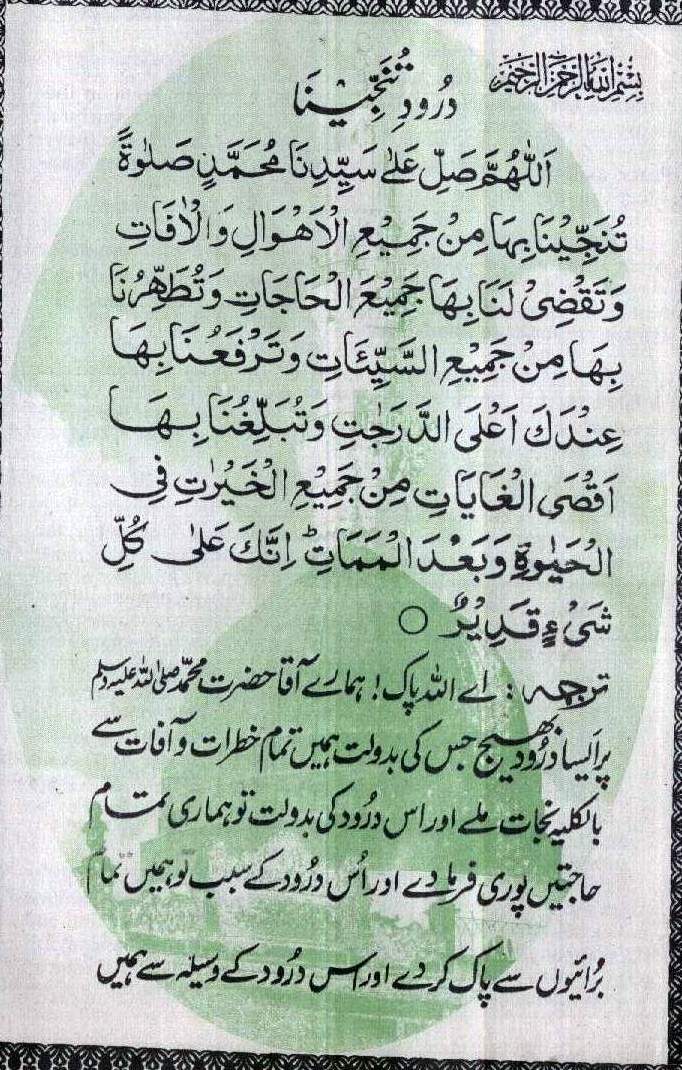 بِسْمِ اللهِ الرَّحْمٰنِ الرَّحِيْمِ
دُرُودِ تُنَجِّيْنَا
اَللّٰهُمَّ صَلِّ عَلٰى سَيِّدِنَا مُحَمَّدٍ صَلٰوةً
تُنَجِّيْنَا بِهَا مِنْ جَمِيْعِ الْاَهْوَالِ وَالْاٰفَاتِ
وَتَقْضِيْ لَنَا بِهَا جَمِيْعَ الْحَاجَاتِ وَتُطَهِّرُنَا
بِهَا مِنْ جَمِيْعِ السَّيِّئَاتِ وَتَرْفَعُنَا بِهَا
عِنْدَكَ اَعْلَى الدَّرَجٰتِ وَتُبَلِّغُنَا بِهَا
اَقْصَى الْغَايَاتِ مِنْ جَمِيْعِ الْخَيْرٰتِ فِى
الْحَيٰوةِ وَبَعْدَ الْمَمَاتِ ؕ اِنَّكَ عَلٰى كُلِّ
شَىْءٍ قَدِيْرٌ ○
ترجمہ: اے اللہ پاک! ہمارے آقا حضرت محمّد صلی اللہ علیہ وسلم
پر ایسا درُود بھیج جس کی بدولت ہمیں تمام خطرات و آفات سے
بالکلیہ نجات ملے اور اس درُود کی بدولت تو ہماری تمام
حاجتیں پوری فرما دے اور اُس درُود کے سبب تو ہمیں تمام
بُرائیوں سے پاک کر دے اور اس درُود کے وسیلہ سے ہمیں